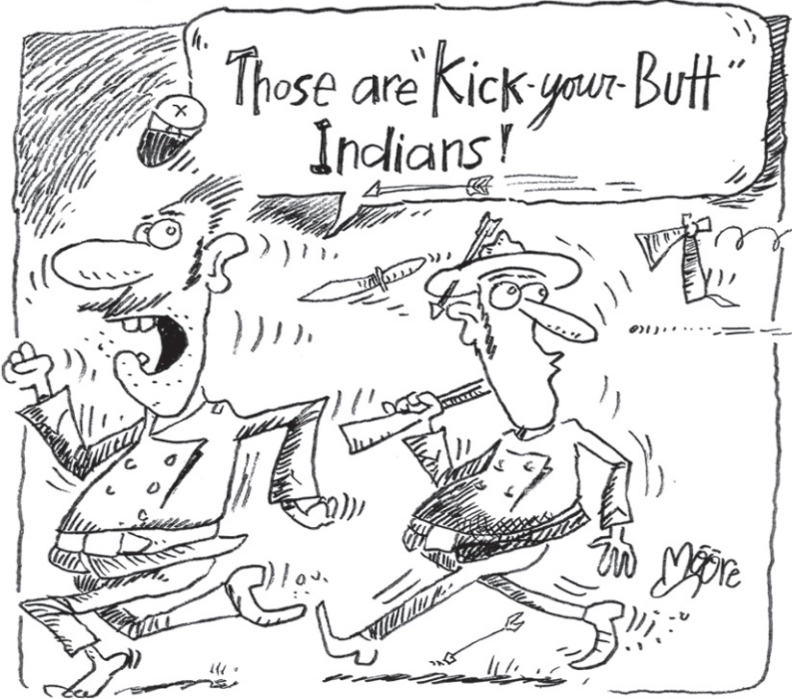 Those are "Kick-your-Butt"
Indians!
Moore